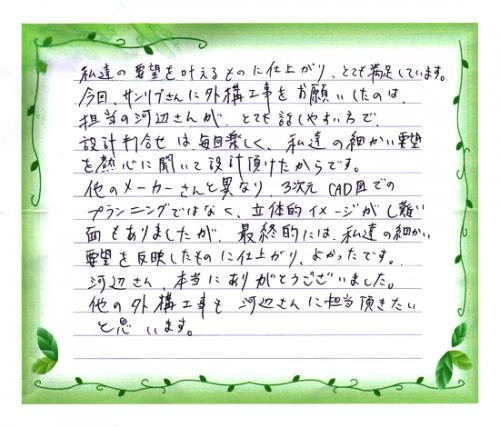 私達の要望を叶えるものに仕上がり、とても満足しています。
今回、サンリブさんに外構工事をお願いしたのは、
担当の河辺さんが、とても話しやすい方で、
設計打合せは毎回楽しく、私達の細かい要望
を熱心に聞いて設計頂けたからです。
他のメーカーさんと異なり、3次元CAD図での
プランニングではなく、立体的イメージがし難い
面もありましたが、最終的には、私達の細かい
要望を反映したものに仕上がり、よかったです。
河辺さん、本当にありがとうございました。
他の外構工事も河辺さんに担当頂きたい
と思います。